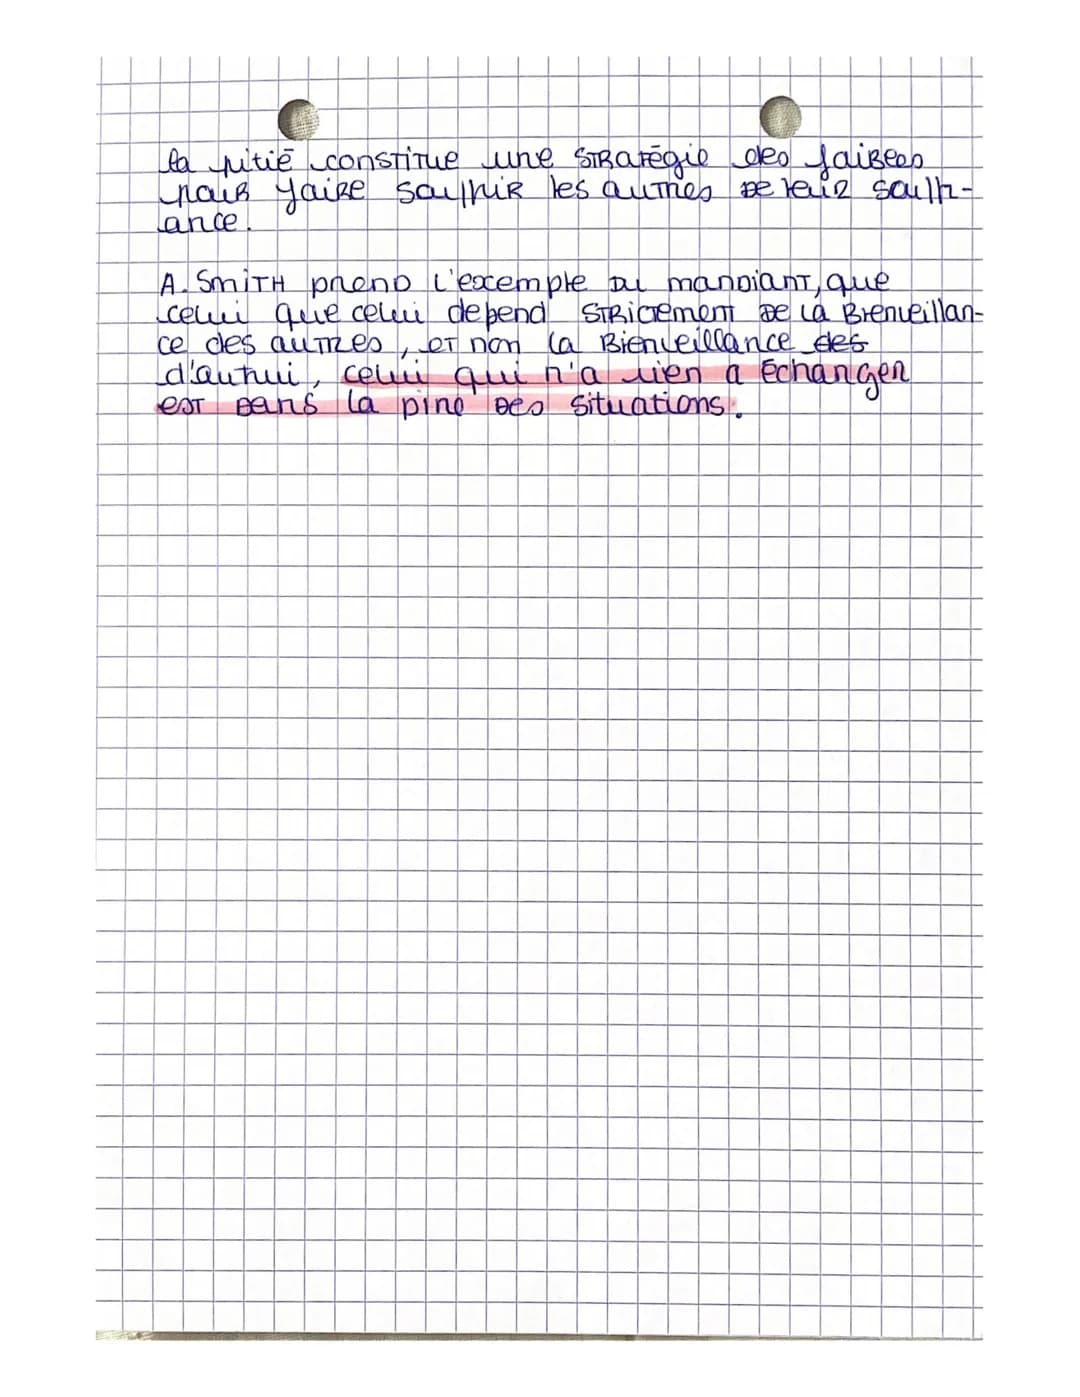 la pitié constitue une stratégie des faibles
pour faire souffrir les autres de leur souffr-
ance.
A. Smith prend l'excemple du mandiant, que
celui que celui depend strictement de la Bienveillan-
ce des autres, et non la Bienveillance des
d'autrui, celui qui n'a rien a échanger
est dans la pire des situations.